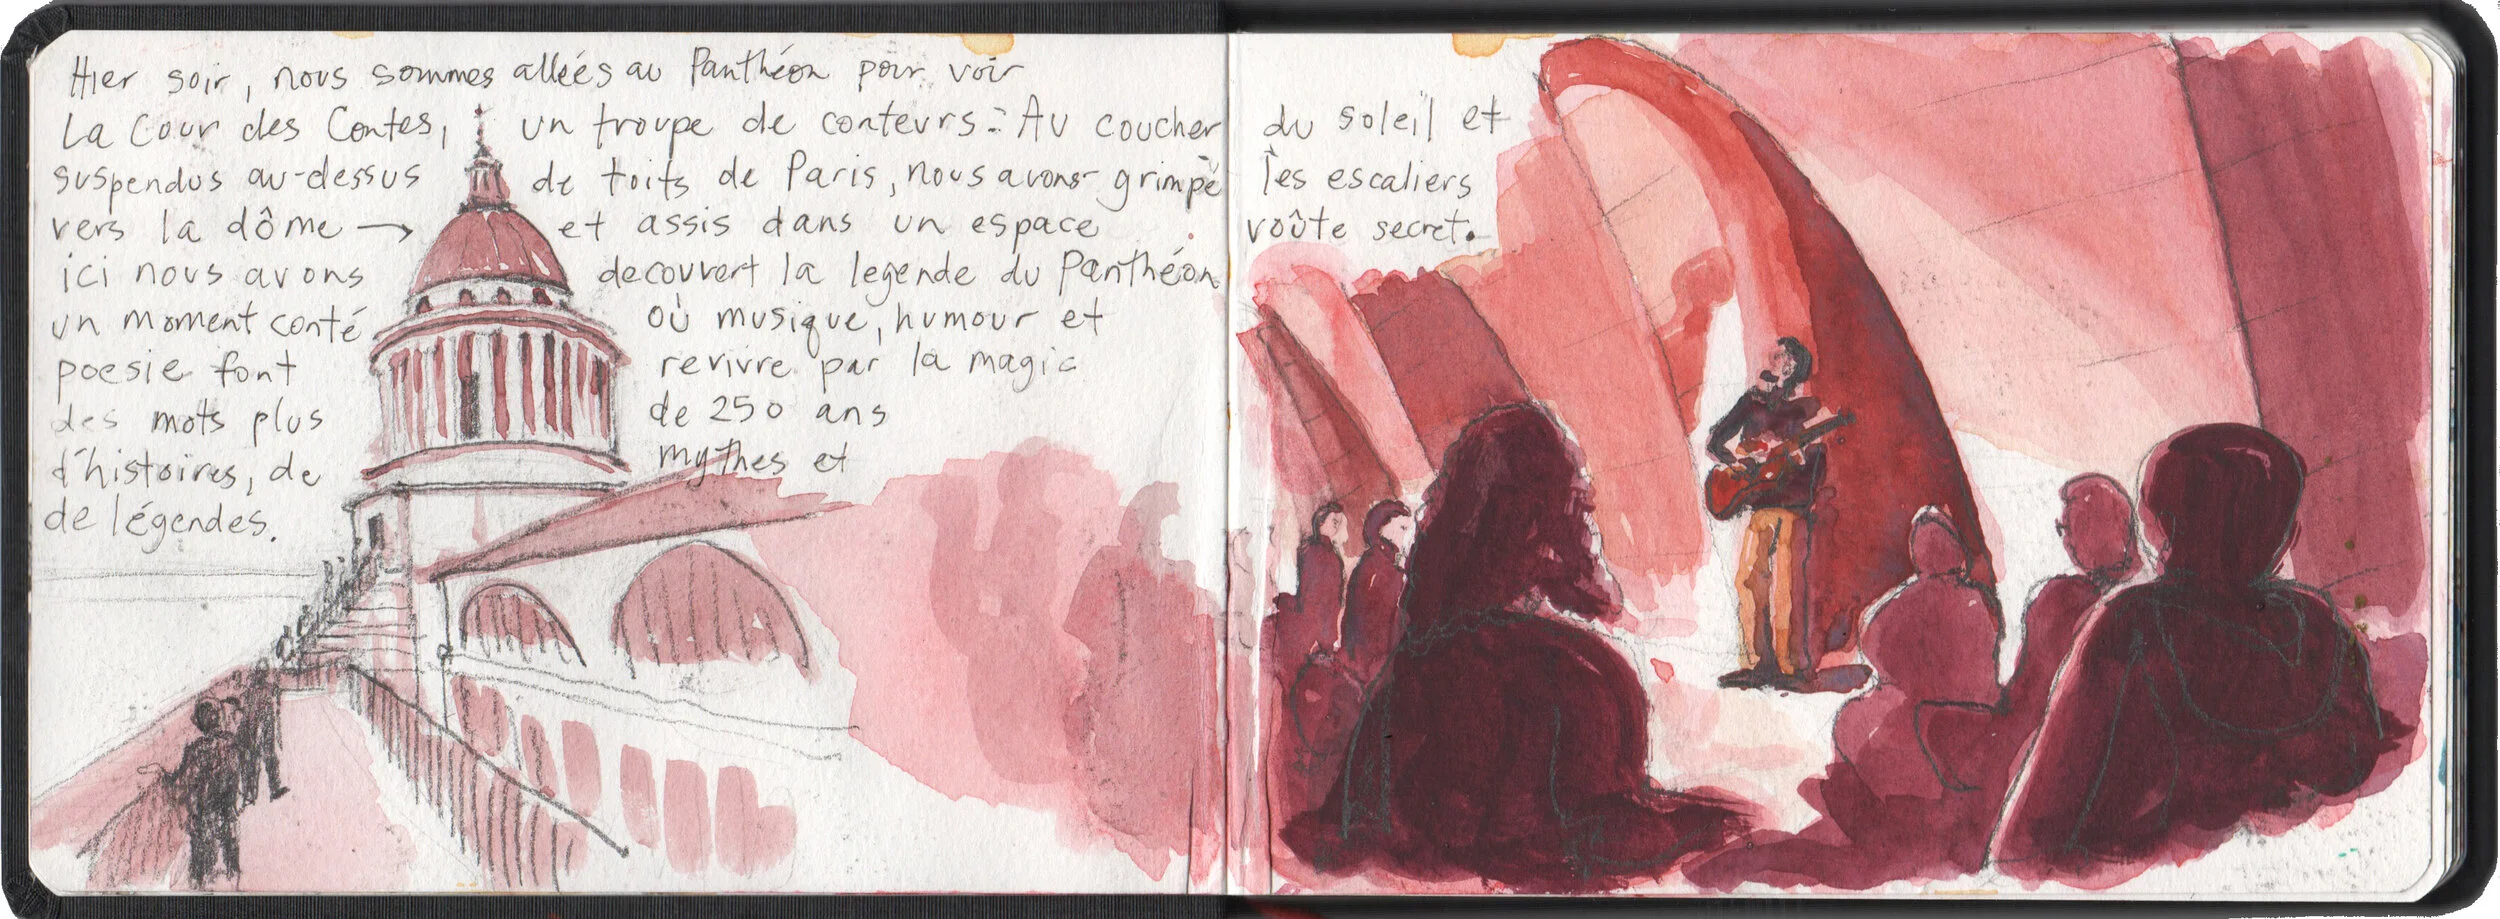 Hier soir, nous sommes alleés au Panthéon pour voir
La Cour des Contes, un troupe de conteurs: Au coucher du soleil et
suspendus au-dessus de toits de Paris, nous avons grimpè les escaliers
vers la dôme → et assis dans un espace voûte secret.
ici nous avons decouvert la legende du Panthéon
un moment conté où musique, humour et
poesie font revivre par la magic
des mots plus de 250 ans
d'histoires, de mythes et
de légendes.